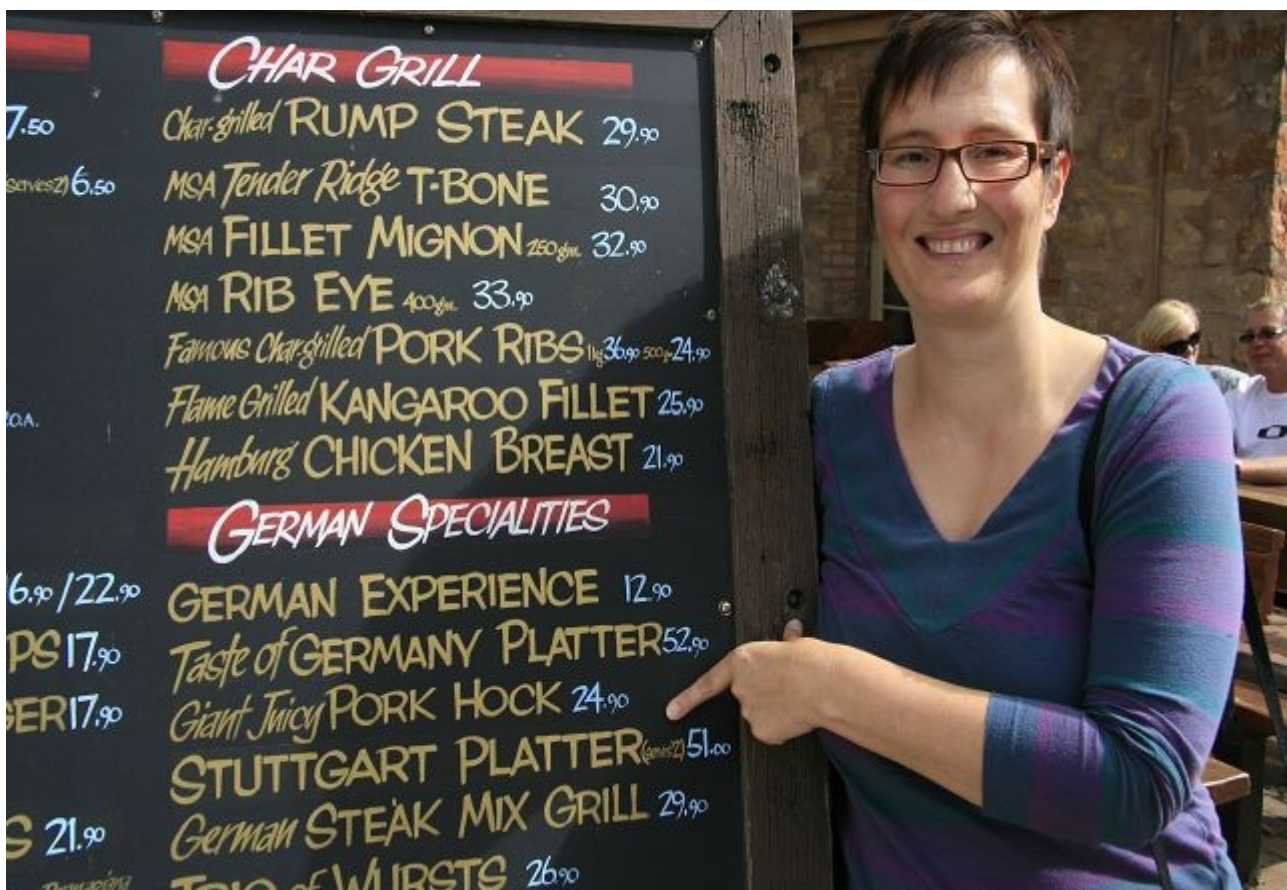 7.50
(serves 2) 6.50
P.O.A.
6.90/22.90
PS 17.90
GER 17.90
S 21.90
CHAR GRILL
Char-grilled RUMP STEAK 29.90
MSA Tender Ridge T-BONE 30.90
MSA FILLET MIGNON 250gm. 32.90
MSA RIB EYE 400gm. 33.90
Famous Char-grilled PORK RIBS 1kg 36.90 500gm 24.90
Flame Grilled KANGAROO FILLET 25.90
Hamburg CHICKEN BREAST 21.90
GERMAN SPECIALITIES
GERMAN EXPERIENCE 12.90
Taste of GERMANY PLATTER 52.90
Giant Juicy PORK HOCK 24.90
STUTTGART PLATTER (serves 2) 51.00
German STEAK MIX GRILL 29.90
TRIO of WURSTS 26.90